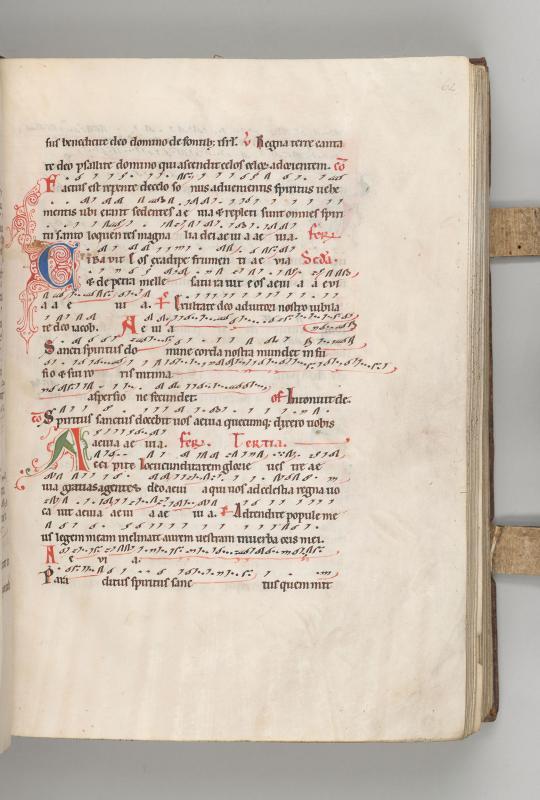 62
sus benedicite deo domino de fontib; isrł. ℣ Regna terre canta
te deo psallite domino qui ascendit celos celoꝝ ad orientem. co
Factus est repente de celo so nus aduenientis spiritus uehe
mentis ubi erant sedentes a e uia & repleti sunt omnes spiri
tu sancto loquentes magna lia dei ae ui a ae uia. fer
Ciba uit eos ex adipe frumen ti ae uia Scda.
& de petra melle saturauit eos aeui a a eui
a a e ui a. ps Exultate deo adiutori nostro iubila
te deo iacob. A e ui a
Sancti spiritus do mine corda nostra mundet in fu
sio & sui ro ris intima
aspersio ne fecundet. of Intonuit de.
co Spiritus sanctus docebit uos aeuia quecumq; dixero uobis
aeuia ae uia. fer Tertia.
Acci pite iocunditatem glorie ues tre ae
uia gratias agentes deo aeui a qui uos ad celestia regna uo
ca uit aeuia aeui a ae uia. ps Adtendite popule me
us legem meam inclinate aurem uestram in uerba oris mei.
A e ui a.
Para clitus spiritus sanc tus quem mitt